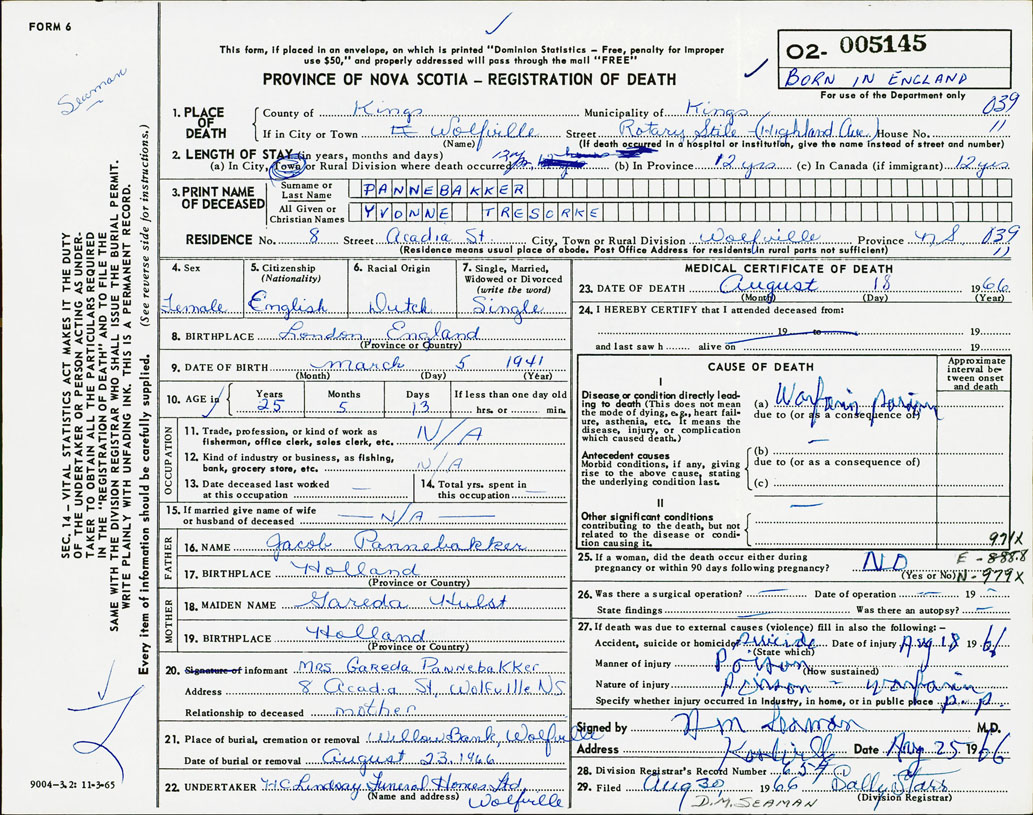 FORM 6
This form, if placed in an envelope, on which is printed "Dominion Statistics – Free, penalty for improper
use $50," and properly addressed will pass through the mail "FREE"
PROVINCE OF NOVA SCOTIA – REGISTRATION OF DEATH
02- 005145
BORN IN ENGLAND
For use of the Department only
Seaman
SEC. 14 – VITAL STATISTICS ACT MAKES IT THE DUTY
OF THE UNDERTAKER OR PERSON ACTING AS UNDER-
TAKER TO OBTAIN ALL THE PARTICULARS REQUIRED
IN THE "REGISTRATION OF DEATH" AND TO FILE THE
SAME WITH THE DIVISION REGISTRAR WHO SHALL ISSUE THE BURIAL PERMIT.
WRITE PLAINLY WITH UNFADING INK. THIS IS A PERMANENT RECORD.
Every item of information should be carefully supplied. (See reverse side for instructions.)
1. PLACE OF DEATH
County of Kings Municipality of Kings 039
If in City or Town Wolfville Street Rotary Stile (Highland Ave.) House No. 11
(Name) (If death occurred in a hospital or institution, give the name instead of street and number)
2. LENGTH OF STAY (in years, months and days)
(a) In City, Town or Rural Division where death occurred (b) In Province 12 yrs (c) In Canada (if immigrant) 12 yrs
3. PRINT NAME OF DECEASED
Surname or Last Name PANNEBAKKER
All Given or Christian Names YVONNE TRESORKE
RESIDENCE No. 8 Street Acadia St. City, Town or Rural Division Wolfville Province NS 039
(Residence means usual place of abode. Post Office Address for residents in rural parts not sufficient) 11
4. Sex Female
5. Citizenship (Nationality) English
6. Racial Origin Dutch
7. Single, Married, Widowed or Divorced (write the word) Single
8. BIRTHPLACE London England
(Province or Country)
9. DATE OF BIRTH March 5 1941
(Month) (Day) (Year)
10. AGE in Years 25 Months 5 Days 13 If less than one day old hrs. or min.
OCCUPATION
11. Trade, profession, or kind of work as fisherman, office clerk, sales clerk, etc. N/A
12. Kind of industry or business, as fishing, bank, grocery store, etc. N/A
13. Date deceased last worked at this occupation —
14. Total yrs. spent in this occupation —
15. If married give name of wife or husband of deceased — N/A —
FATHER
16. NAME Jacob Pannebakker
17. BIRTHPLACE Holland
(Province or Country)
MOTHER
18. MAIDEN NAME Gareda Hulst
19. BIRTHPLACE Holland
(Province or Country)
20. Signature of informant MRS. GAREDA PANNEBAKKER
Address 8 Acadia St, Wolfville NS
Relationship to deceased mother
21. Place of burial, cremation or removal WillowBank, Wolfville
Date of burial or removal August 23, 1966
22. UNDERTAKER H.C. Lindsay Funeral Homes Ltd,
(Name and address) Wolfville
9004–3.2: 11-3-65
MEDICAL CERTIFICATE OF DEATH
23. DATE OF DEATH August 18 1966
(Month) (Day) (Year)
24. I HEREBY CERTIFY that I attended deceased from:
19 to 19
and last saw h alive on 19
CAUSE OF DEATH
Approximate interval between onset and death
I
Disease or condition directly lead-
ing to death (This does not mean
the mode of dying, e.g., heart fail-
ure, asthenia, etc. It means the
disease, injury, or complication
which caused death.)
(a) Warfarin poison
due to (or as a consequence of)
Antecedent causes
Morbid conditions, if any, giving
rise to the above cause, stating
the underlying condition last.
(b) —
due to (or as a consequence of)
(c)
II
Other significant conditions
contributing to the death, but not
related to the disease or condi-
tion causing it.
—
971X
25. If a woman, did the death occur either during
pregnancy or within 90 days following pregnancy? NO E - 888.8
(Yes or No) N - 979X
26. Was there a surgical operation? — Date of operation — 19 —
State findings — Was there an autopsy? —
27. If death was due to external causes (violence) fill in also the following:–
Accident, suicide or homicide Suicide Date of injury Aug 18 1966
(State which)
Manner of injury Poison
(How sustained)
Nature of injury Poison - warfarin
Specify whether injury occurred in industry, in home, or in public place p. p.
Signed by H M Seaman M.D.
Address Date Aug 25 1966
28. Division Registrar's Record Number 657
29. Filed Aug 30, 1966 Sally Starr
D.M. SEAMAN (Division Registrar)